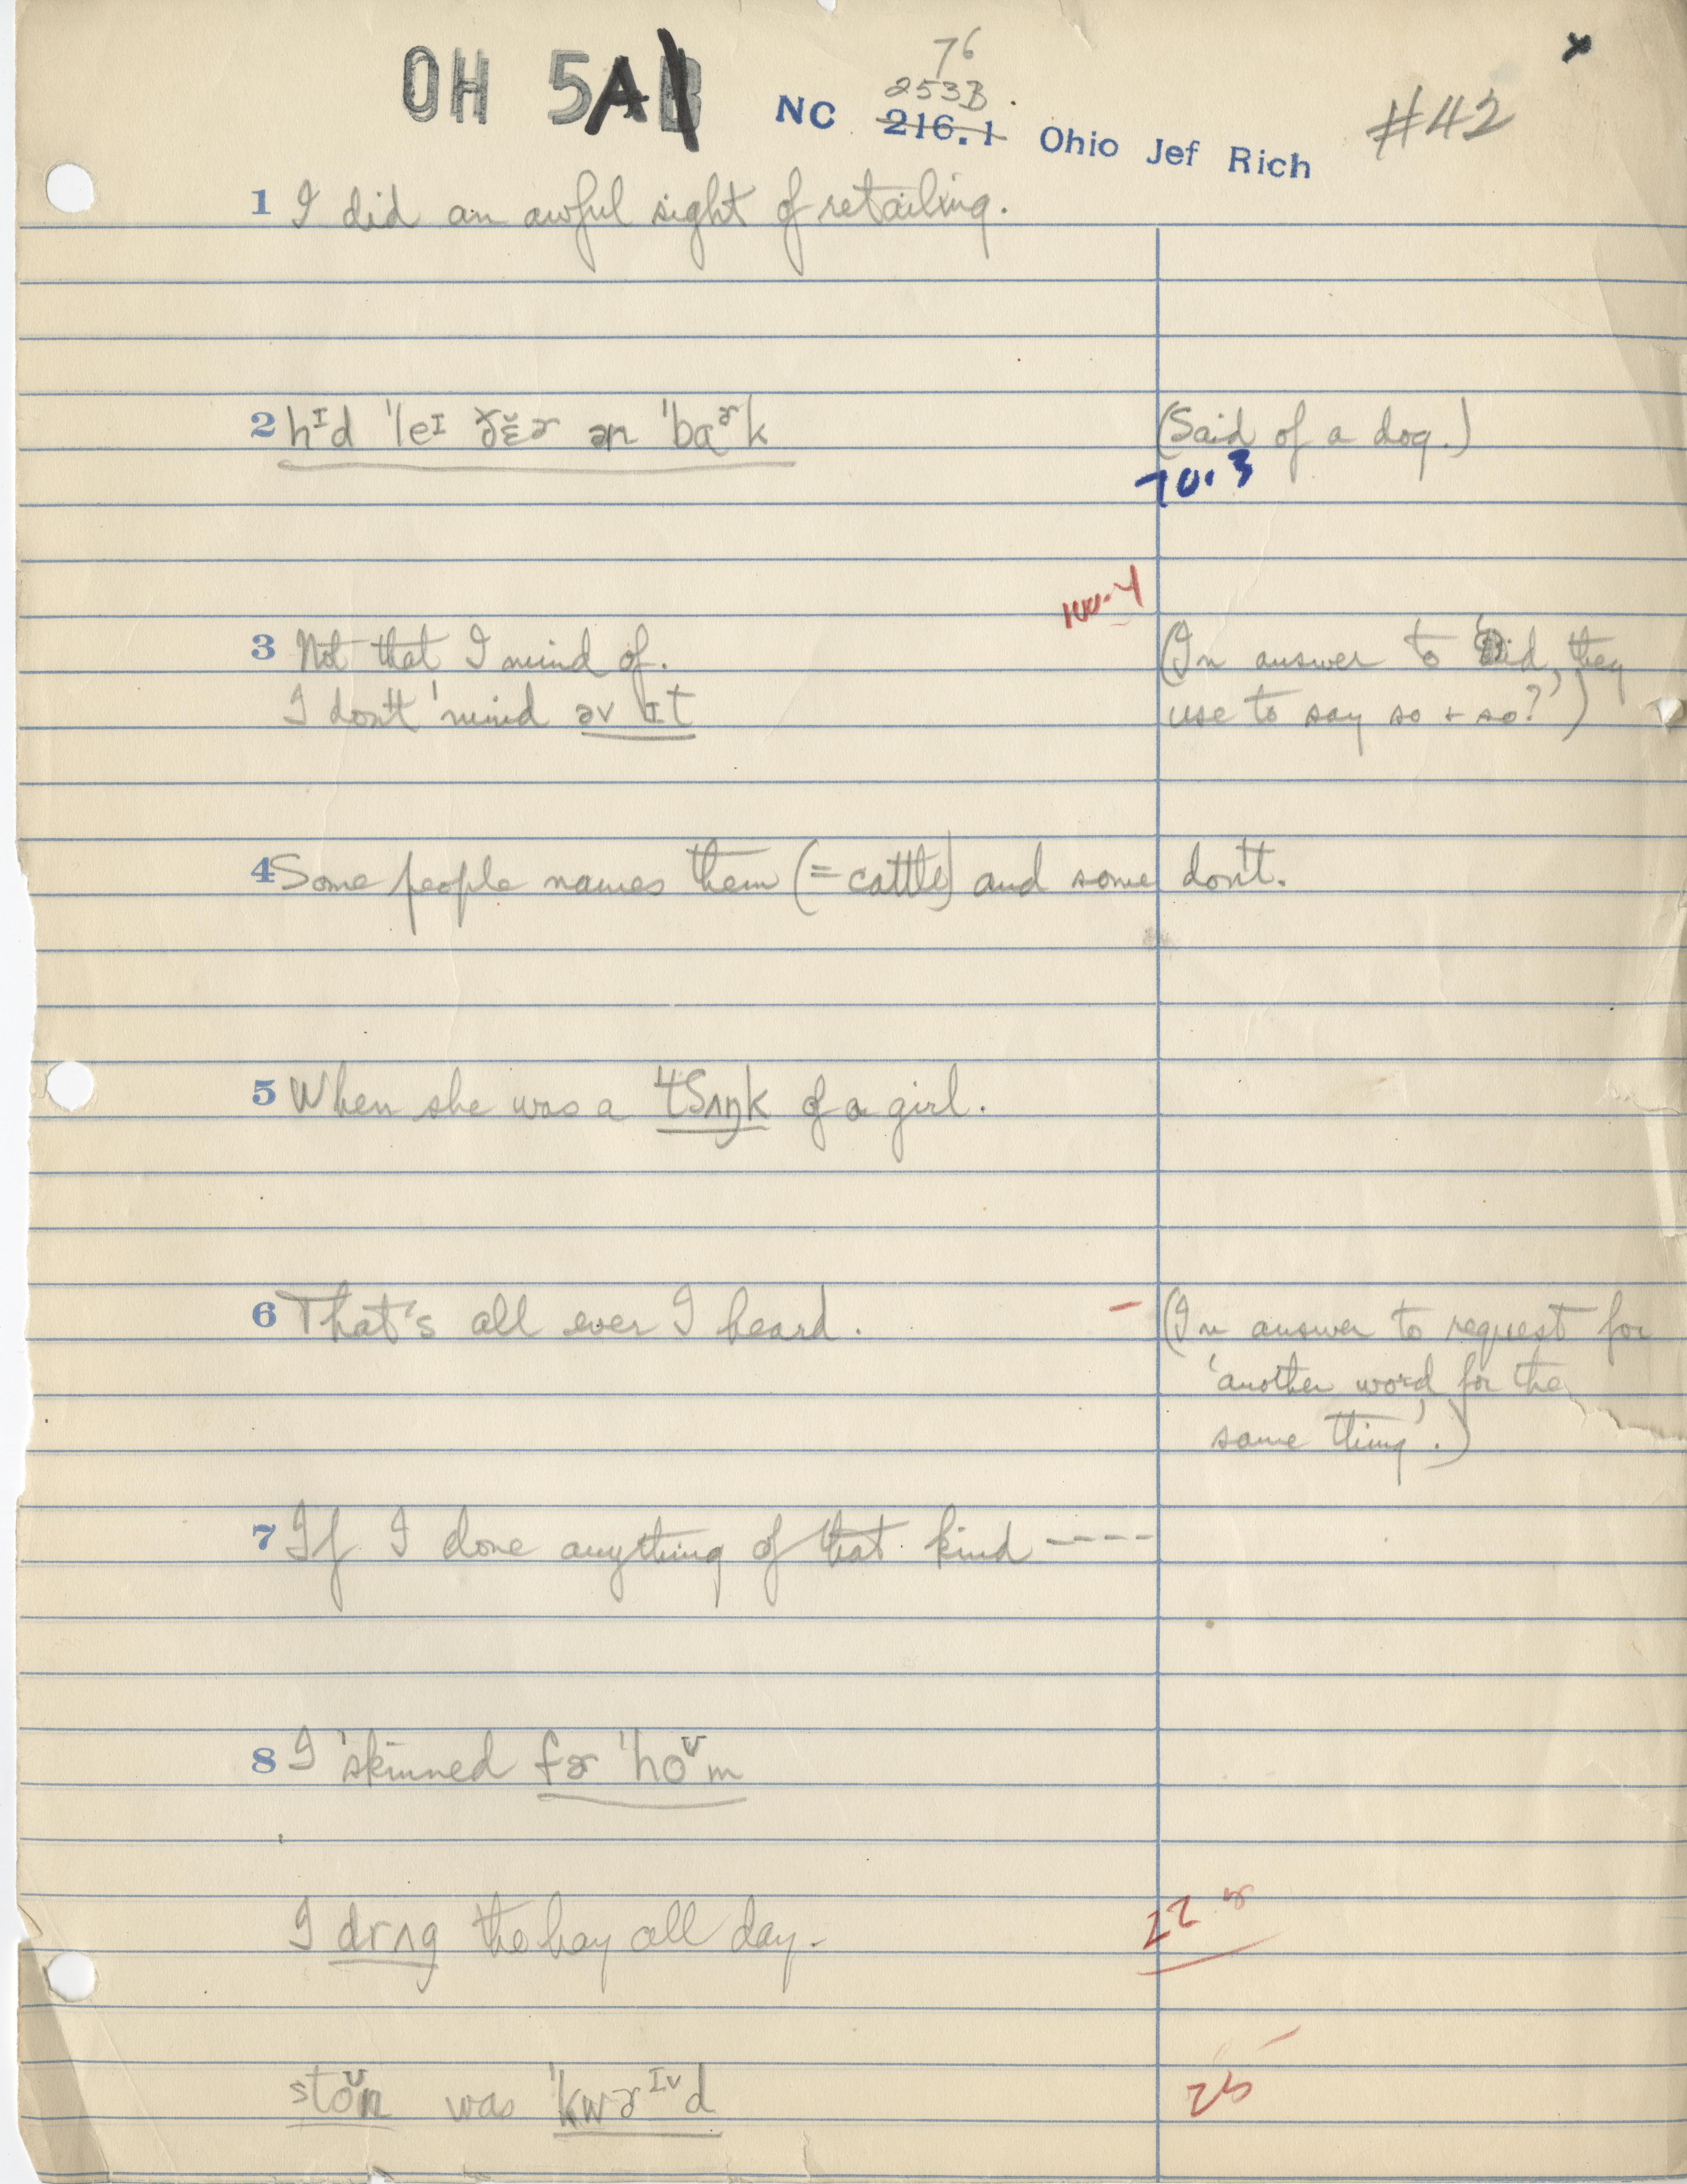 76
OH 5A
253B.
NC 216.1 Ohio Jef Rich #42
1 I did an awful sight of retailing.
2 hɪd 'leɪ ðɛ̆ɚ ən 'bɑɚk (Said of a dog.)
70.3
100.4
3 Not that I mind of. (In answer to 'Did they
I don't 'mind əv ɪt use to say so + so?')
4 Some people names them (= cattle) and some don't.
5 When she was a tʃʌŋk of a girl.
6 That's all ever I heard. - (In answer to request for
'another word for the
same thing'.)
7 If I done anything of that kind ----
8 I 'skinned fɚ 'hoᵕm
I drʌg the hay all day. 22
stoᵕn was 'kwɚɪvd 25